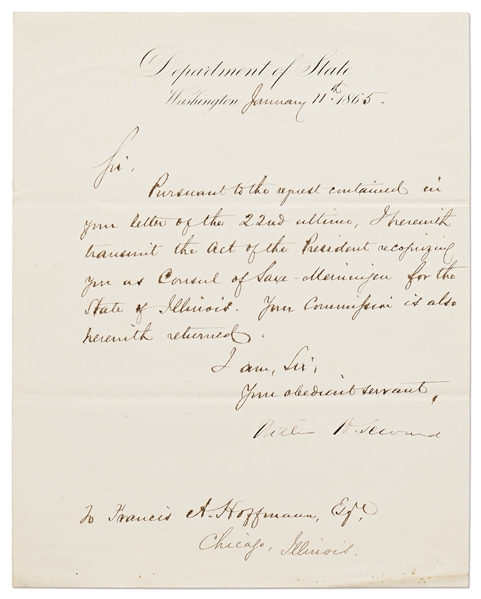 Department of State
Washington January 11th 1865.
Sir,
Pursuant to the request contained in
your letter of the 22nd ultimo, I herewith
transmit the Act of the President recognizing
you as Consul of Saxe-Meiningen for the
State of Illinois. Your Commission is also
herewith returned.
I am, Sir,
Your obedient servant,
William H. Seward
To Francis A. Hoffmann, Esqr.
Chicago, Illinois.